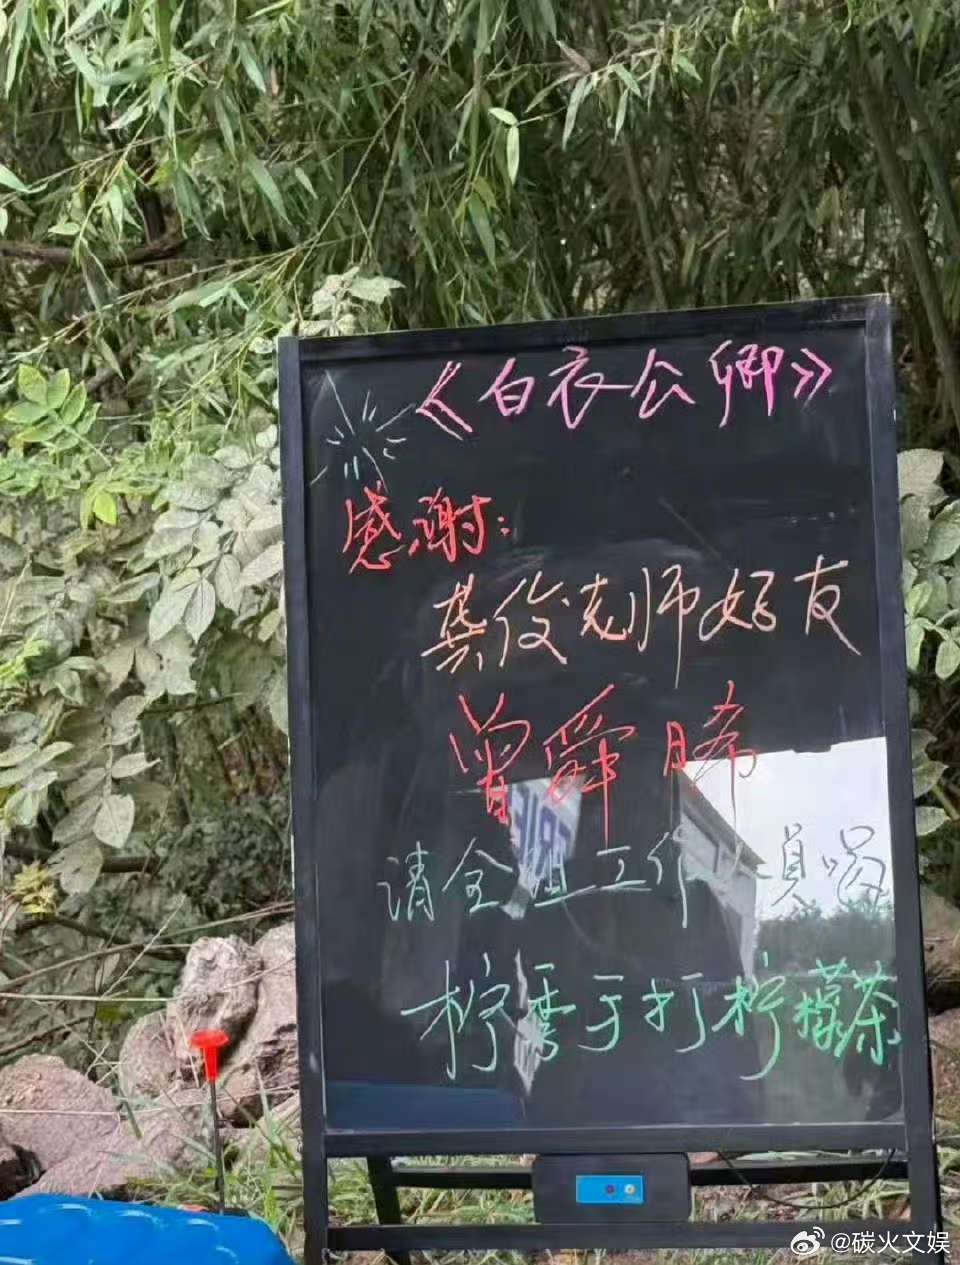 《白衣公卿》
感谢:
龚俊老师好友
曾舜晞
请全组工作人员喝
柠季手打柠檬茶
@碳火文娱